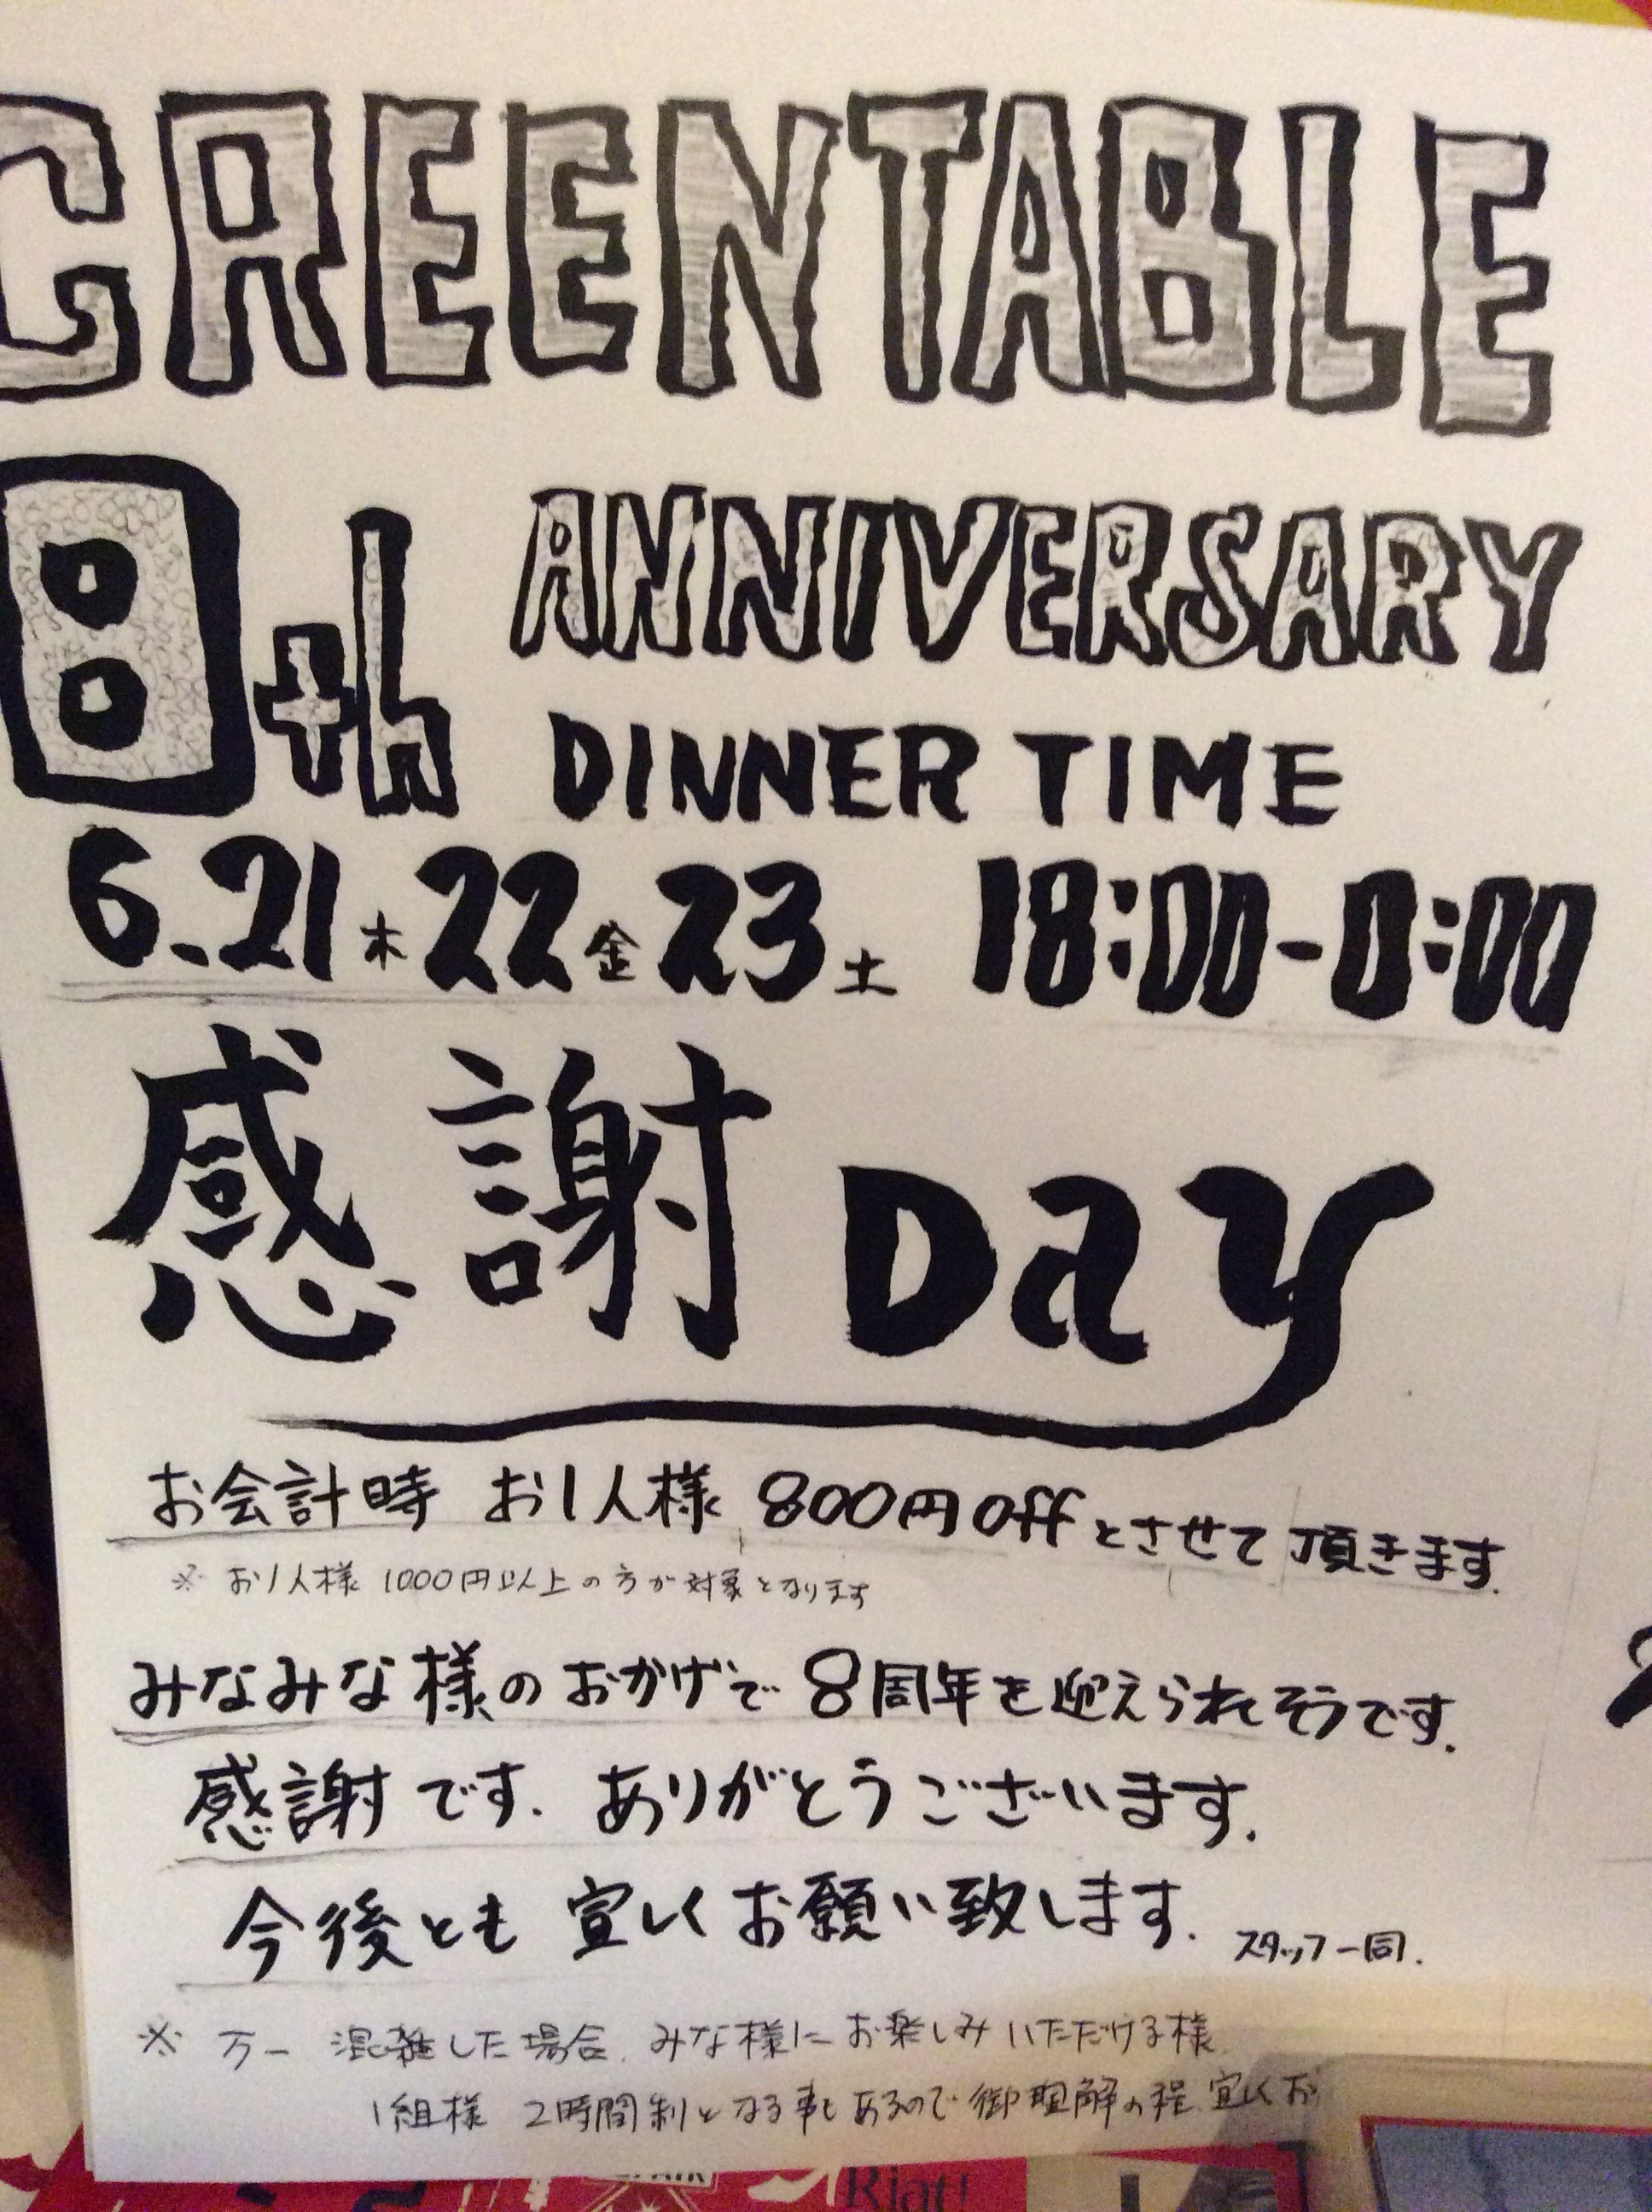 GREENTABLE
8th ANNIVERSARY
DINNER TIME
6.21木22金23土 18:00-0:00
感謝Day
お会計時 お1人様 800円offとさせて頂きます.
※ お1人様 1000円以上の方が対象となります
みなみな様のおかげで8周年を迎えられそうです.
感謝です. ありがとうございます.
今後とも 宜しくお願い致します. スタッフ一同.
※ 万一 混雑した場合. みな様に お楽しみいただける様
1組様 2時間制となる事もあるので御理解の程 宜しくお
Riat!